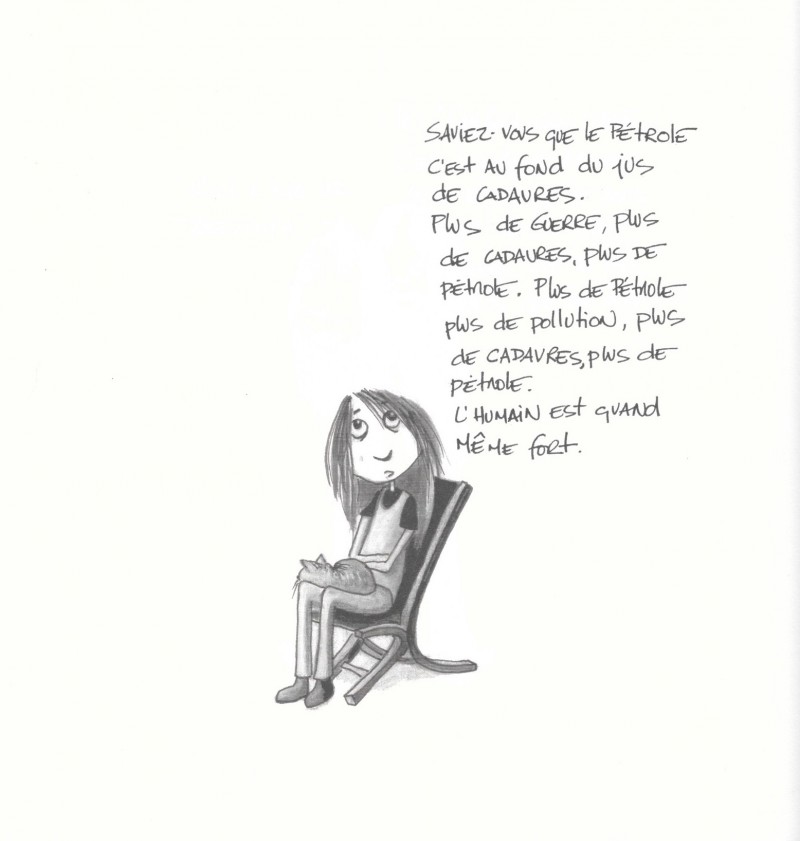 SAVIEZ-VOUS QUE LE PÉTROLE
C'EST AU FOND DU JUS
DE CADAVRES.
PLUS DE GUERRE, PLUS
DE CADAVRES, PLUS DE
PÉTROLE. PLUS DE PÉTROLE
PLUS DE POLLUTION, PLUS
DE CADAVRES, PLUS DE
PÉTROLE.
L'HUMAIN EST QUAND
MÊME FORT.